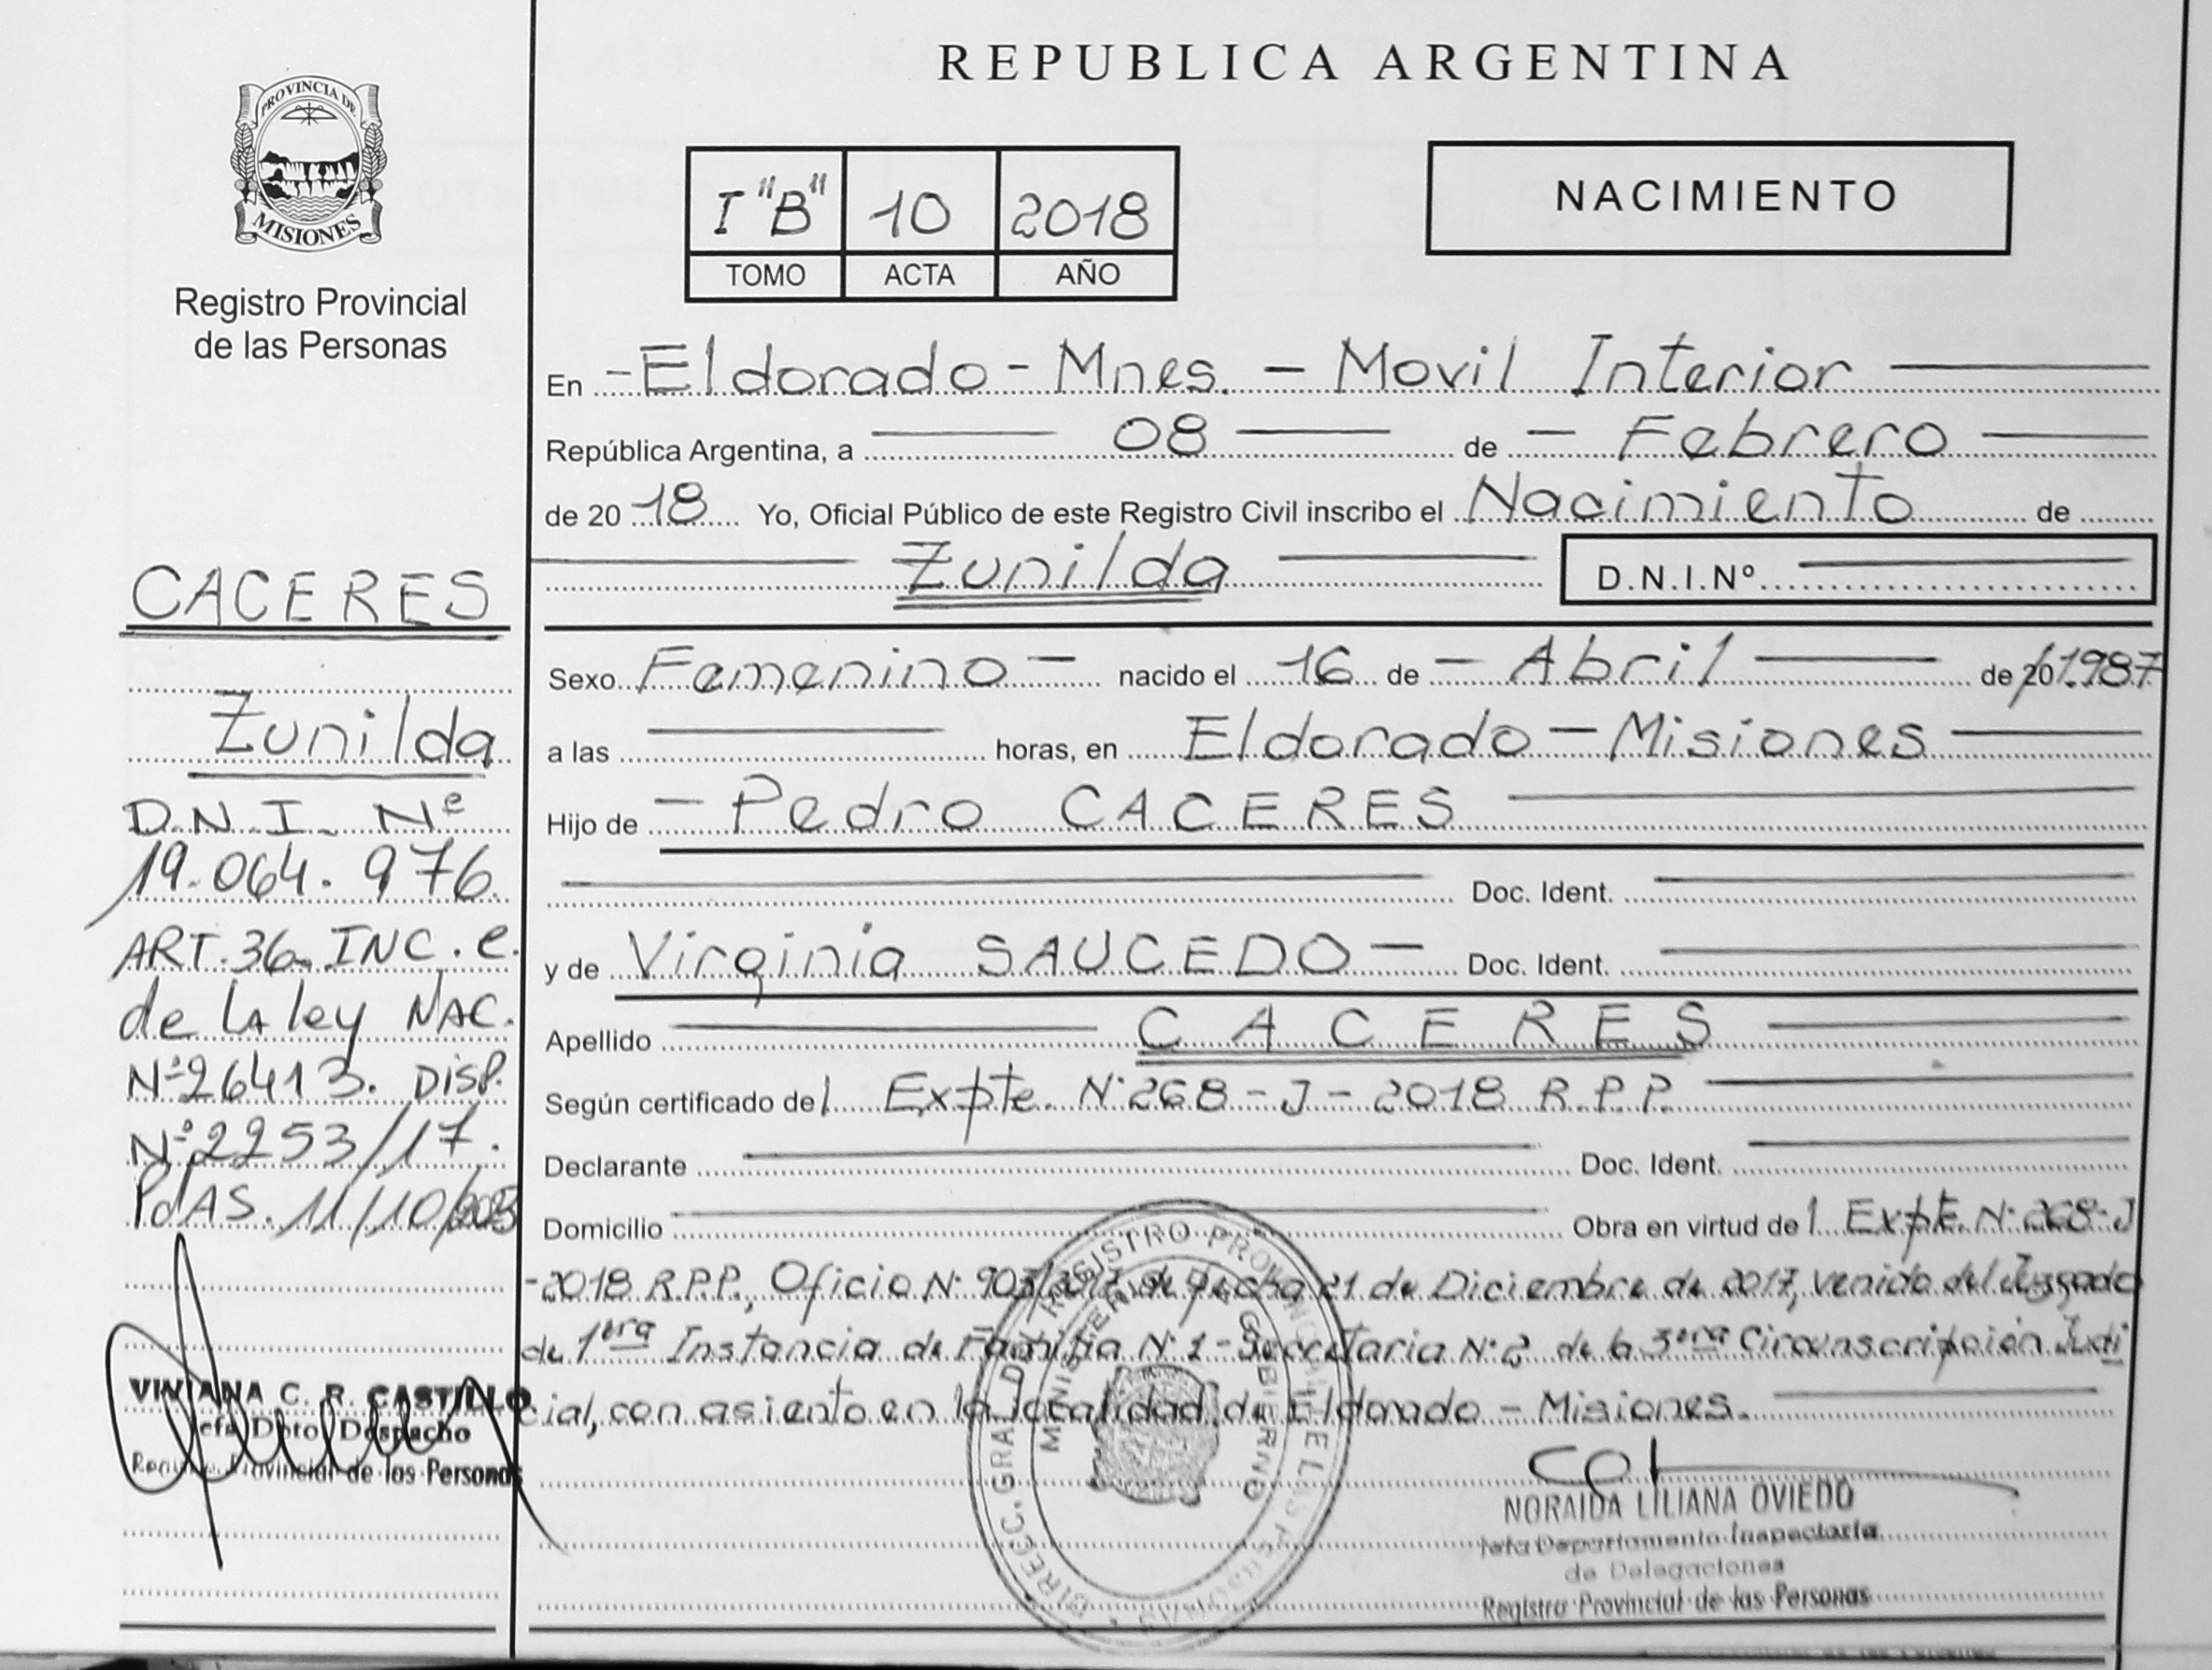 REPUBLICA ARGENTINA
PROVINCIA DE
MISIONES
Registro Provincial
de las Personas
I "B" 10 2018
TOMO ACTA AÑO
NACIMIENTO
En - Eldorado - Mnes. - Movil Interior
República Argentina, a 08 de - Febrero
de 20 18 Yo, Oficial Público de este Registro Civil inscribo el Nacimiento de
Zunilda D.N.I.Nº
Sexo Femenino - nacido el 16 de - Abril de 20/1987
a las horas, en Eldorado - Misiones
Hijo de - Pedro CACERES
Doc. Ident.
y de Virginia SAUCEDO - Doc. Ident.
Apellido CACERES
Según certificado del Expte. Nº 268 - J - 2018 R.P.P.
Declarante Doc. Ident.
Domicilio Obra en virtud del Expte. Nº 268-J
-2018 R.P.P., Oficio Nº de fecha 21 de Diciembre de 2017, venido del Juzgado
de 1era Instancia de Familia Nº 1 - Secretaria Nº 2 de la 3era Circunscripción Judi
cial, con asiento en la localidad de Eldorado - Misiones.
NORAIDA LILIANA OVIEDO
Jefa Departamento Inspectoría
de Delegaciones
Registro Provincial de las Personas
CACERES
Zunilda
D.N.I. Nº
19.064.976.
ART. 36 INC. c.
de LA ley NAC.
Nº 26413. DISP.
Nº 2253/17.
PdAS. 11/10/
VIVIANA C. R. CASTILLO
Jefa Dpto Despacho
Registro Provincial de las Personas
DIRECC. GRAL. DEL REGISTRO PROVINCIAL DE LAS PERSONAS
MINISTERIO DE GOBIERNO